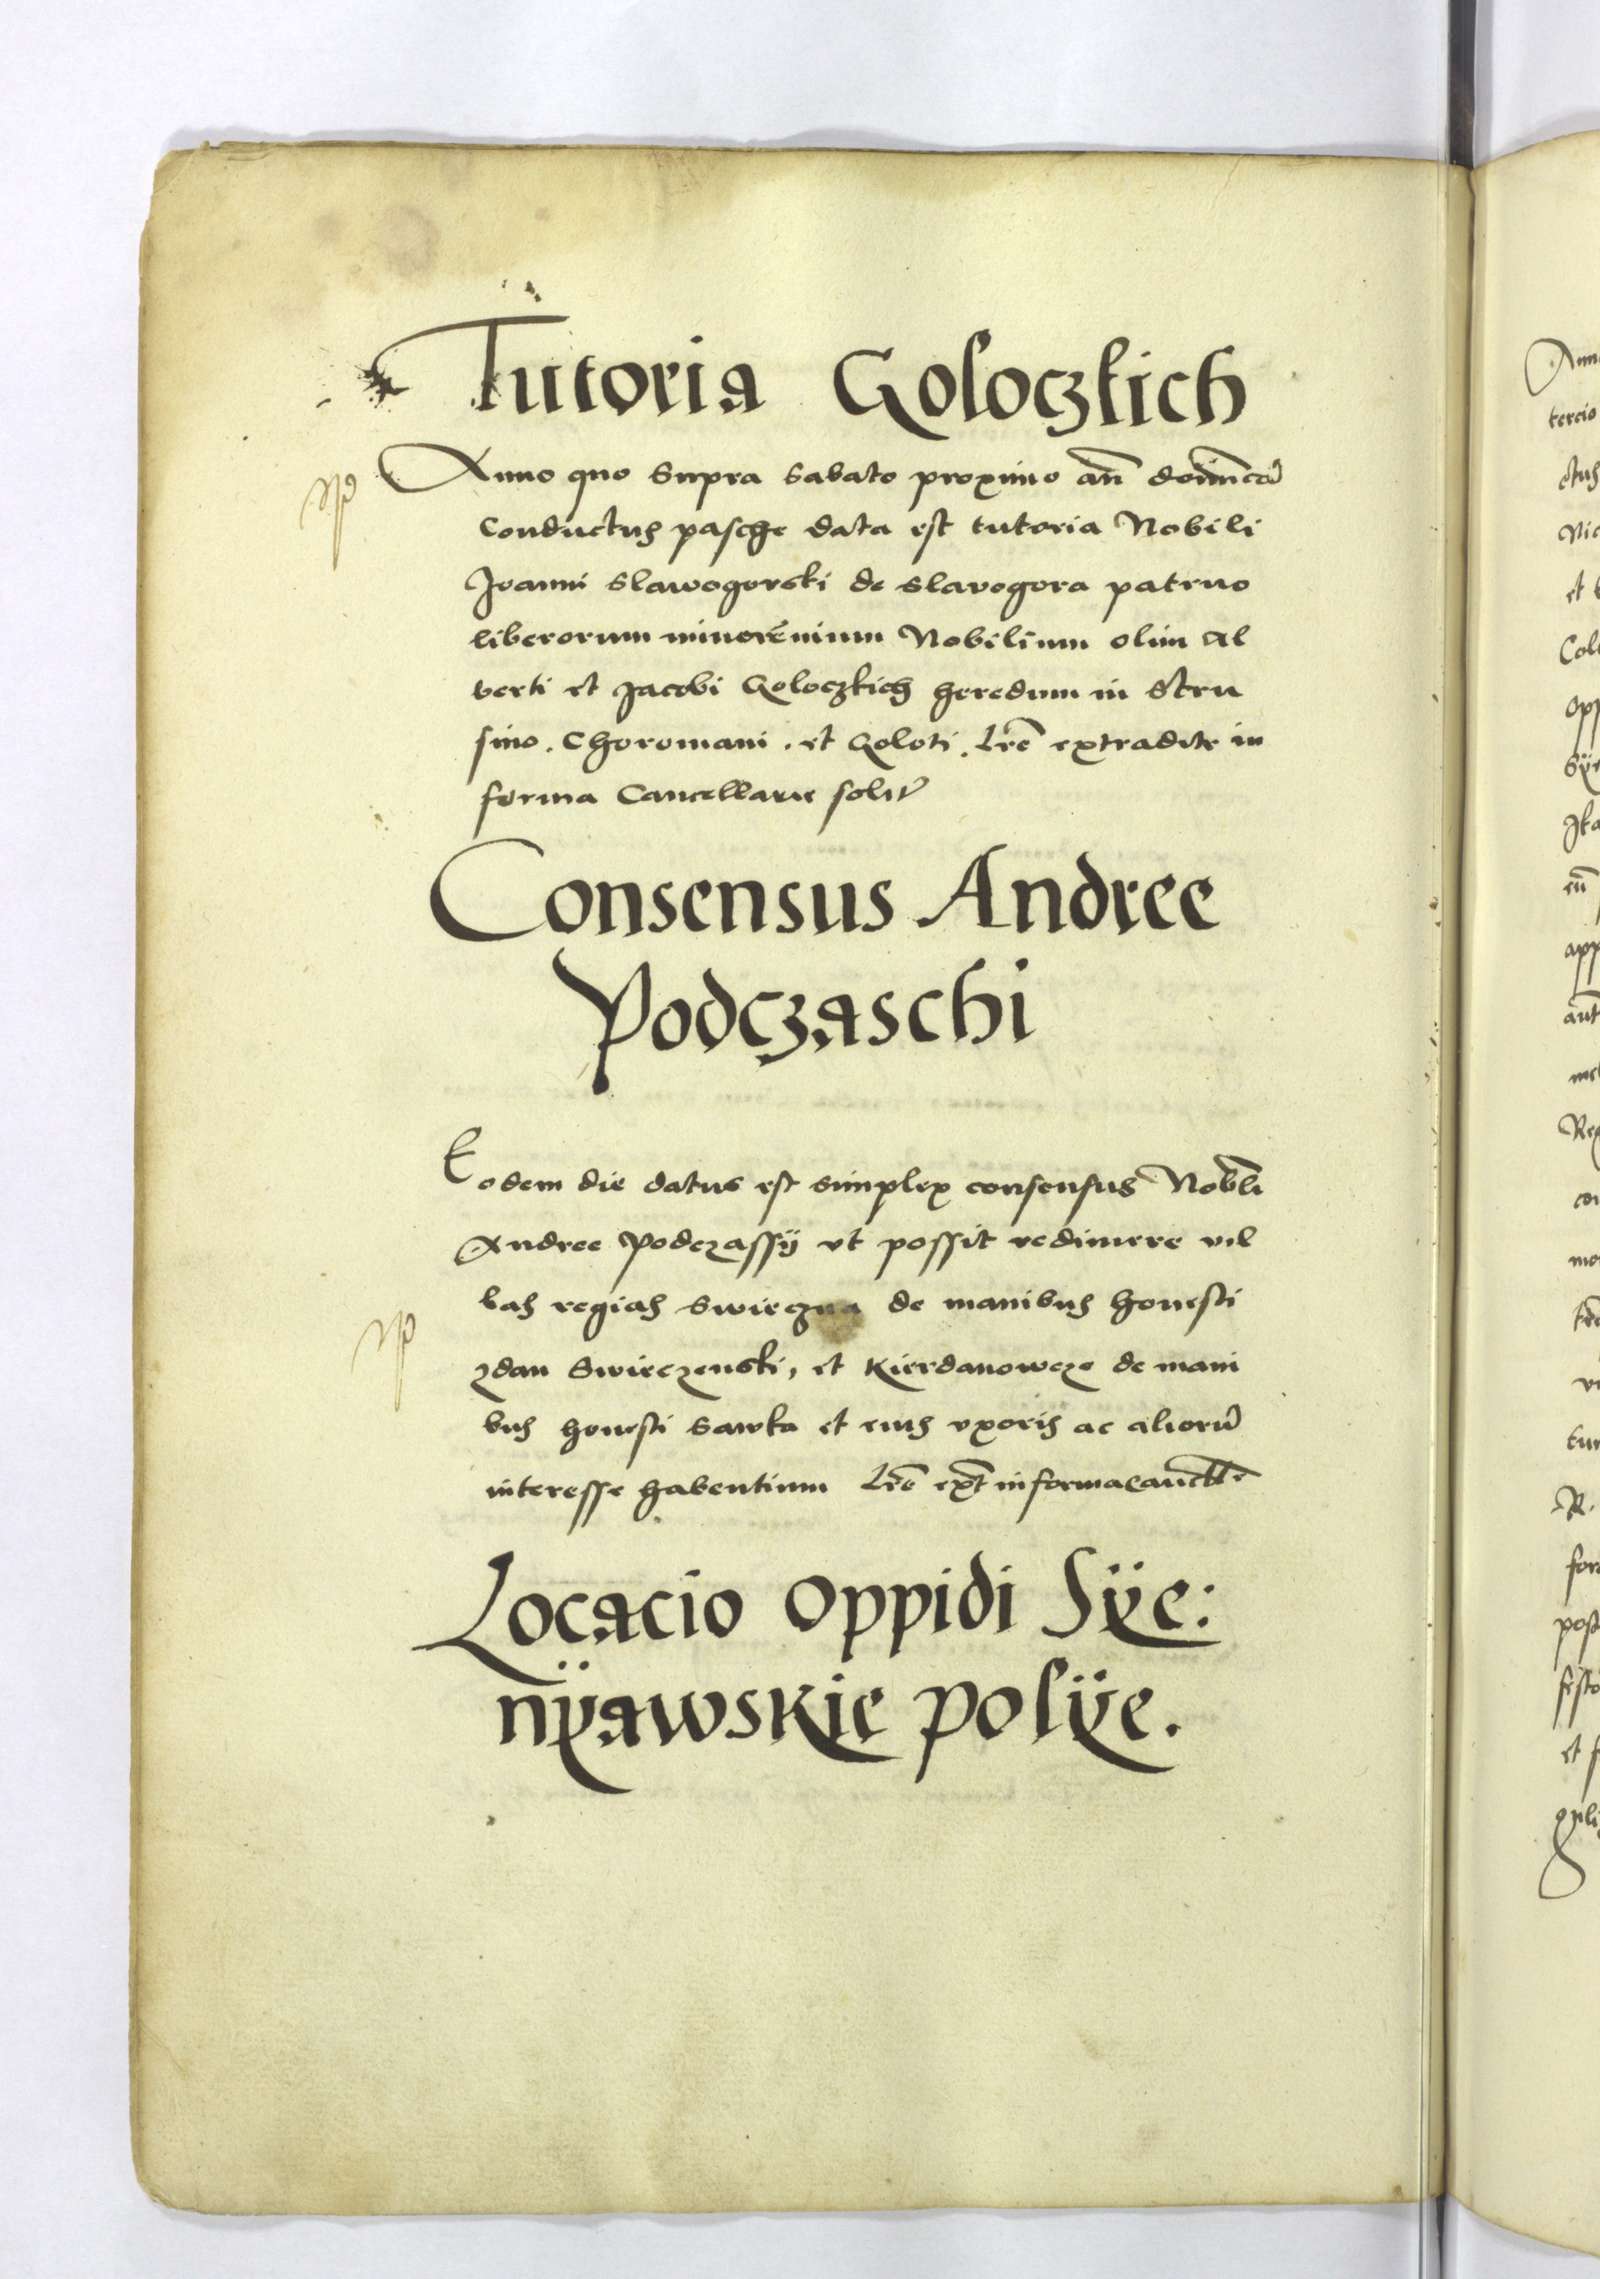 Tutoria Goloczkich
Anno quo supra sabato proximo an̄ dominicā
Conductus pasche data est tutoria Nobili
Joanni Slawogorski de Slavogora patruo
liberorum minorēnium Nobilium olim Al
berti et Jacobi Goloczkich heredum in Stru
sino. Choromani. et Goloti. Lr̄e extradite in
forma Cancellarie solit̄
Consensus Andree
Podczaschi
Eodem die datus est simplex consensus Nobl̄i
Andree Podczassÿ vt possit redimere vil
las regias Swieczna de manibus honesti
zdan Swieczenski, et Kierdanowcze de mani
bus honesti Sawka et eius vxoris ac aliorū
interesse habentium Lr̄e ext̄ in forma cancell̄e
Locacio oppidi Sÿe:
nÿawskie polÿe.
Anno
tercio
ctus
Nic
et
Colo
opp
Sÿe
app
Reg
R.
for
post
festo
et f